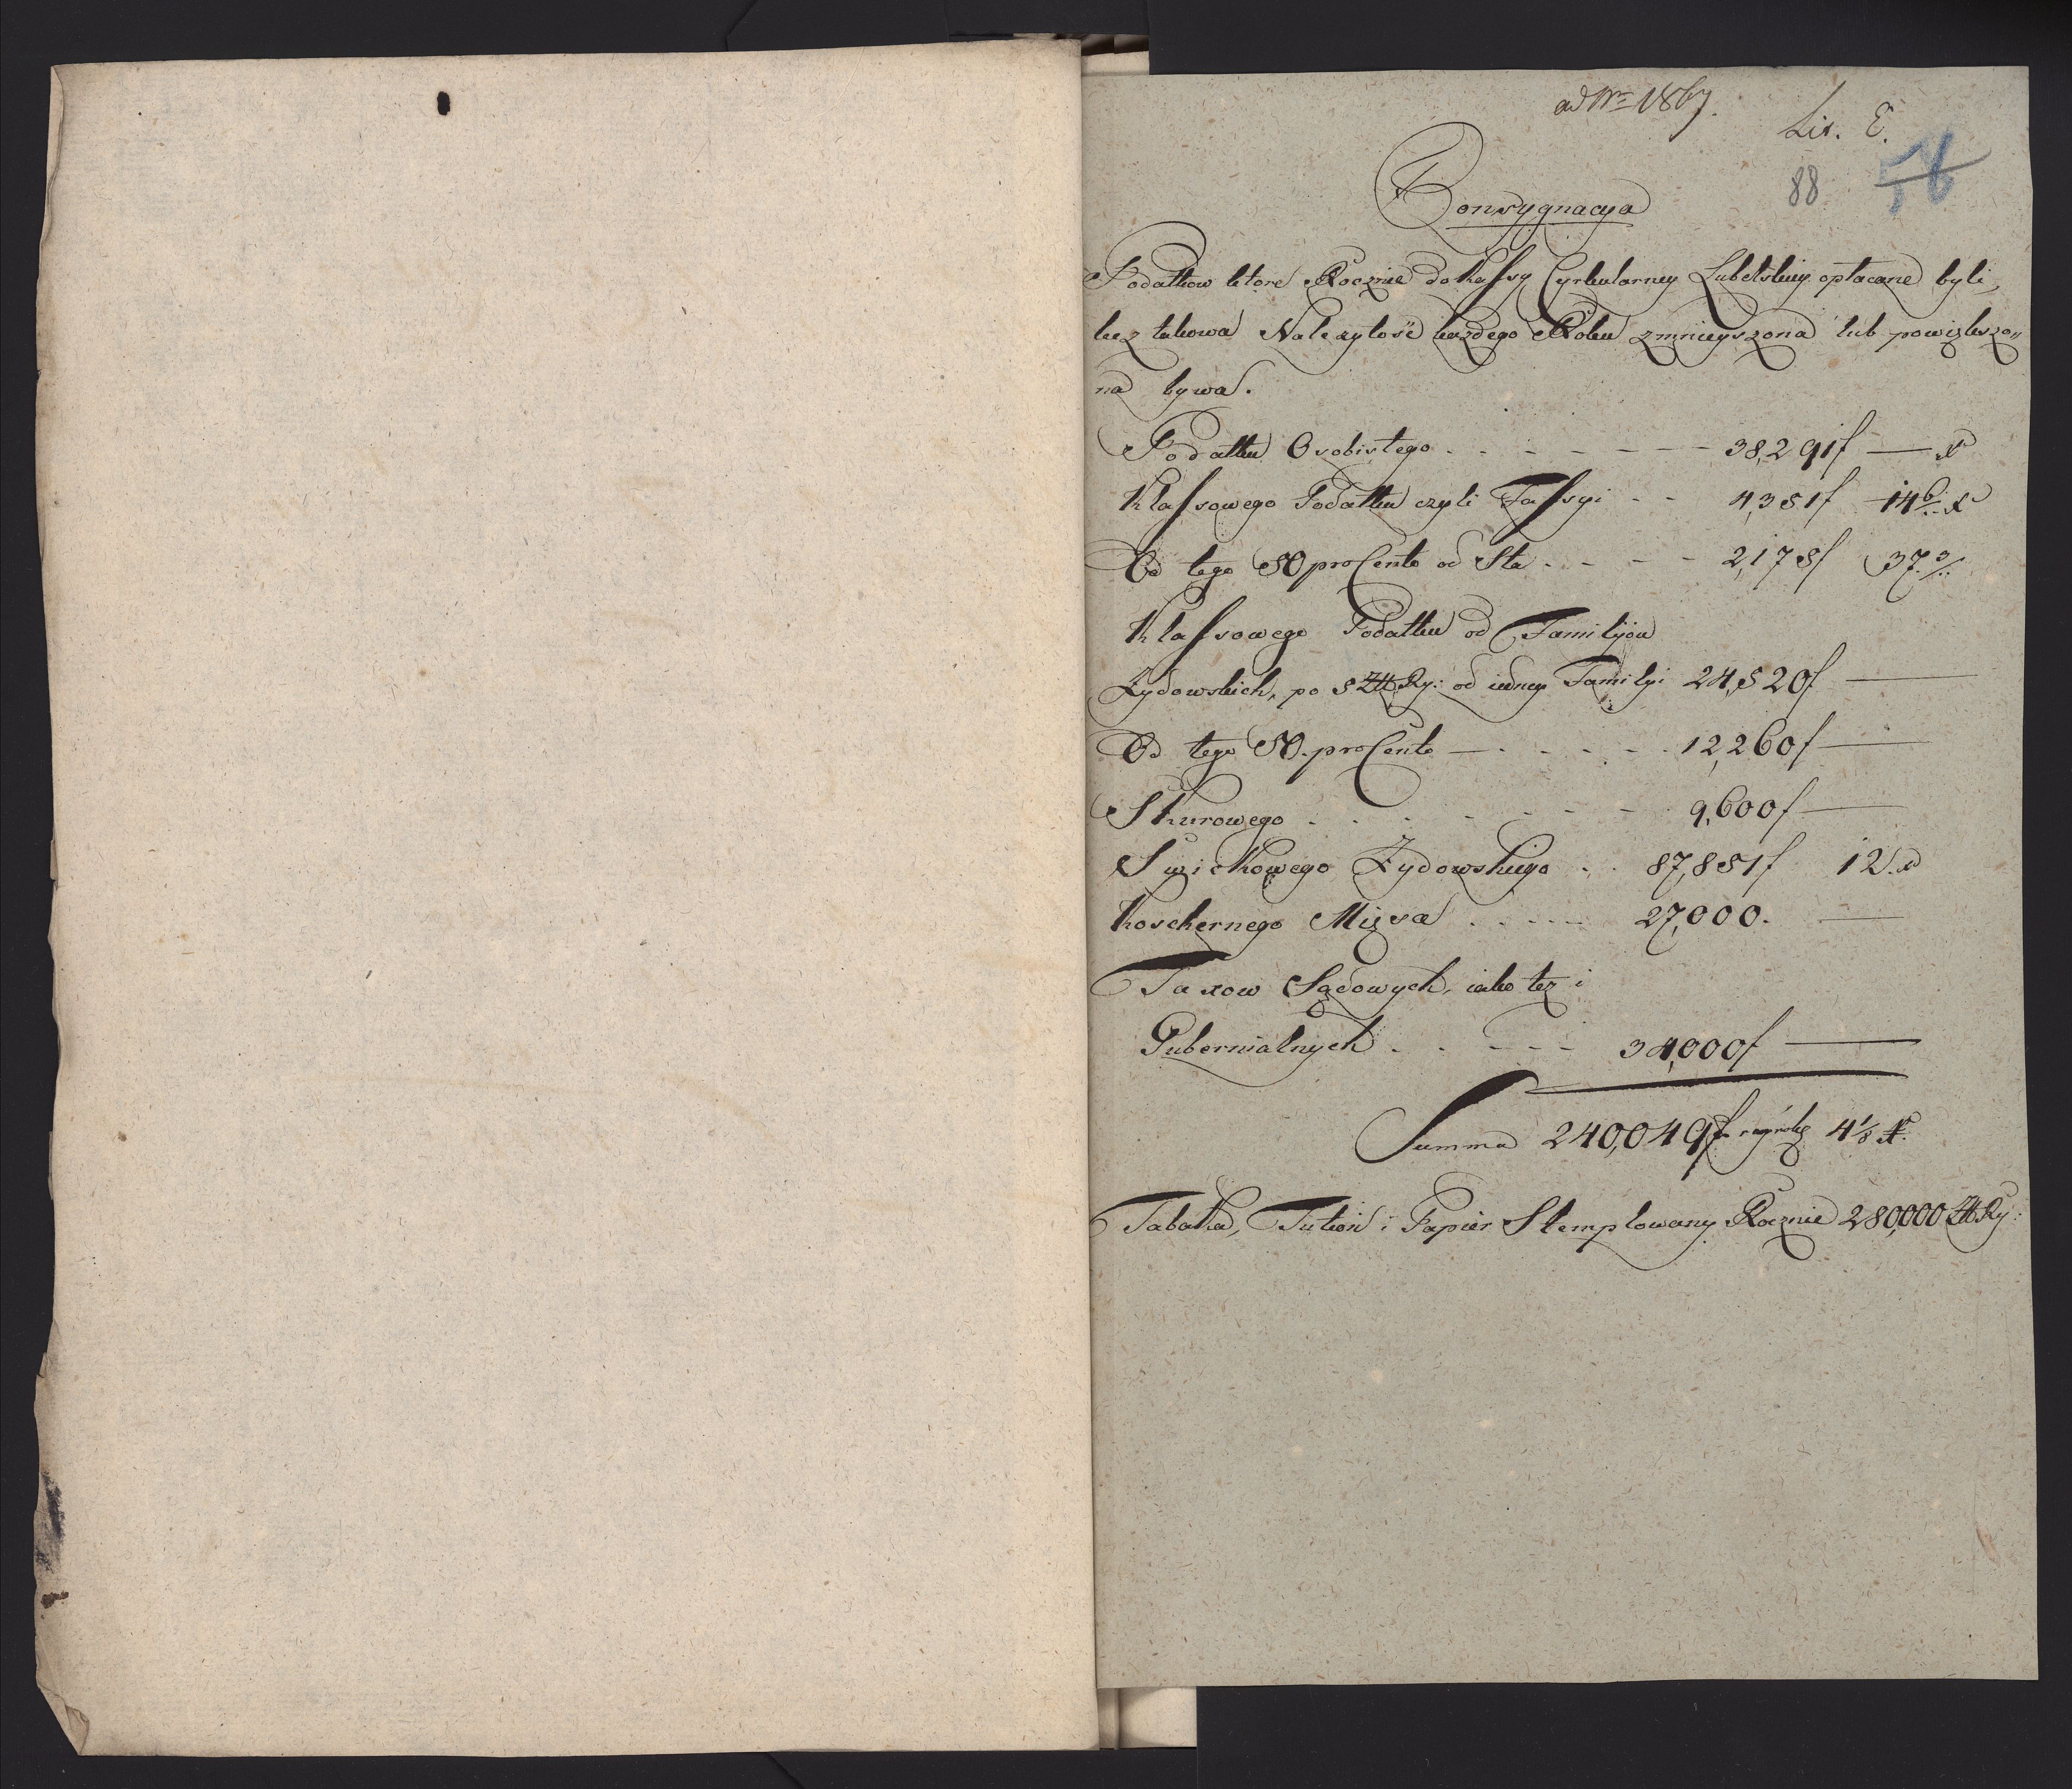 ad Nr 1867.
Lit. E.
88 58
Konsygnacya
Podatkow ktore Rocznie do Kassy Cyrkularney Lubelskiey opłacane byli,
lecz takowa Należytość każdego Roku zmnieyszona lub powiększo„
na bywa.
Podatku Osobistego . . - - - - - 38,291f — x
Klassowego Podatku czyli Fassyi - - 4,351f 14 6/.. x
Od tego 50 pro Cento od Sta . - - - 2,175f 37 3/..
Klassowego Podatku od Familyow
Zydowskich, po 5 Zł Ry: od iedney Familyi 24,520f —
Od tego 50. pro Cento — . - . - . 12,260f —
Skurowego . . . - - - - 9,600f —
Swiczkowego Zydowskiego . . 87,851f 12. x
Koschernego Mięsa . . - - - 27,000. —
Taxow Sądowych, iako też i
Gubernialnych . . - - - 34,000f —
Summa 240,049f 4 1/8 x.
Tabaka, Tutuń i Papier Stemplowany Rocznie 250,000 Zł Ry: